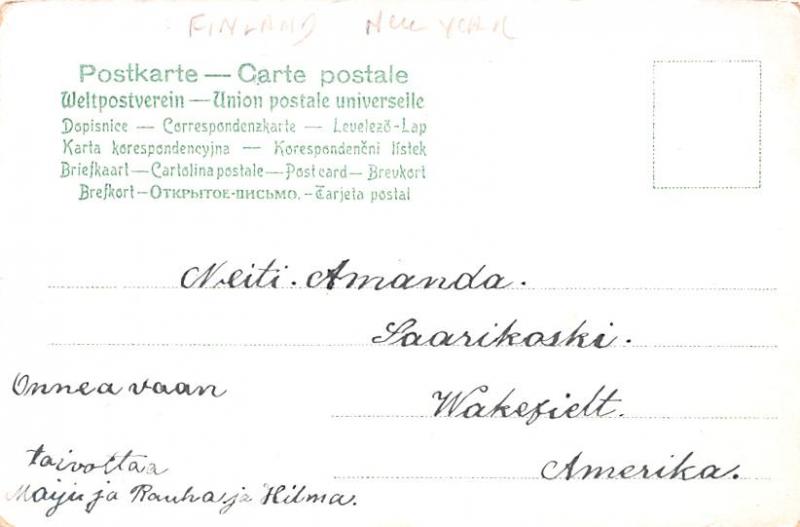 FINLAND New YORK
Postkarte — Carte postale
Weltpostverein — Union postale universelle
Dopisnice — Correspondenzkarte — Levelező-Lap
Karta korespondencyjna — Korespondenční lístek
Briefkaart — Cartolina postale — Post card — Brevkort
Brefkort — Открытое-письмо. — Tarjeta postal
Neiti. Amanda.
Saarikoski.
Onnea vaan
Wakefielt.
toivottaa
Amerika.
Maiju ja Rauha ja Hilma.